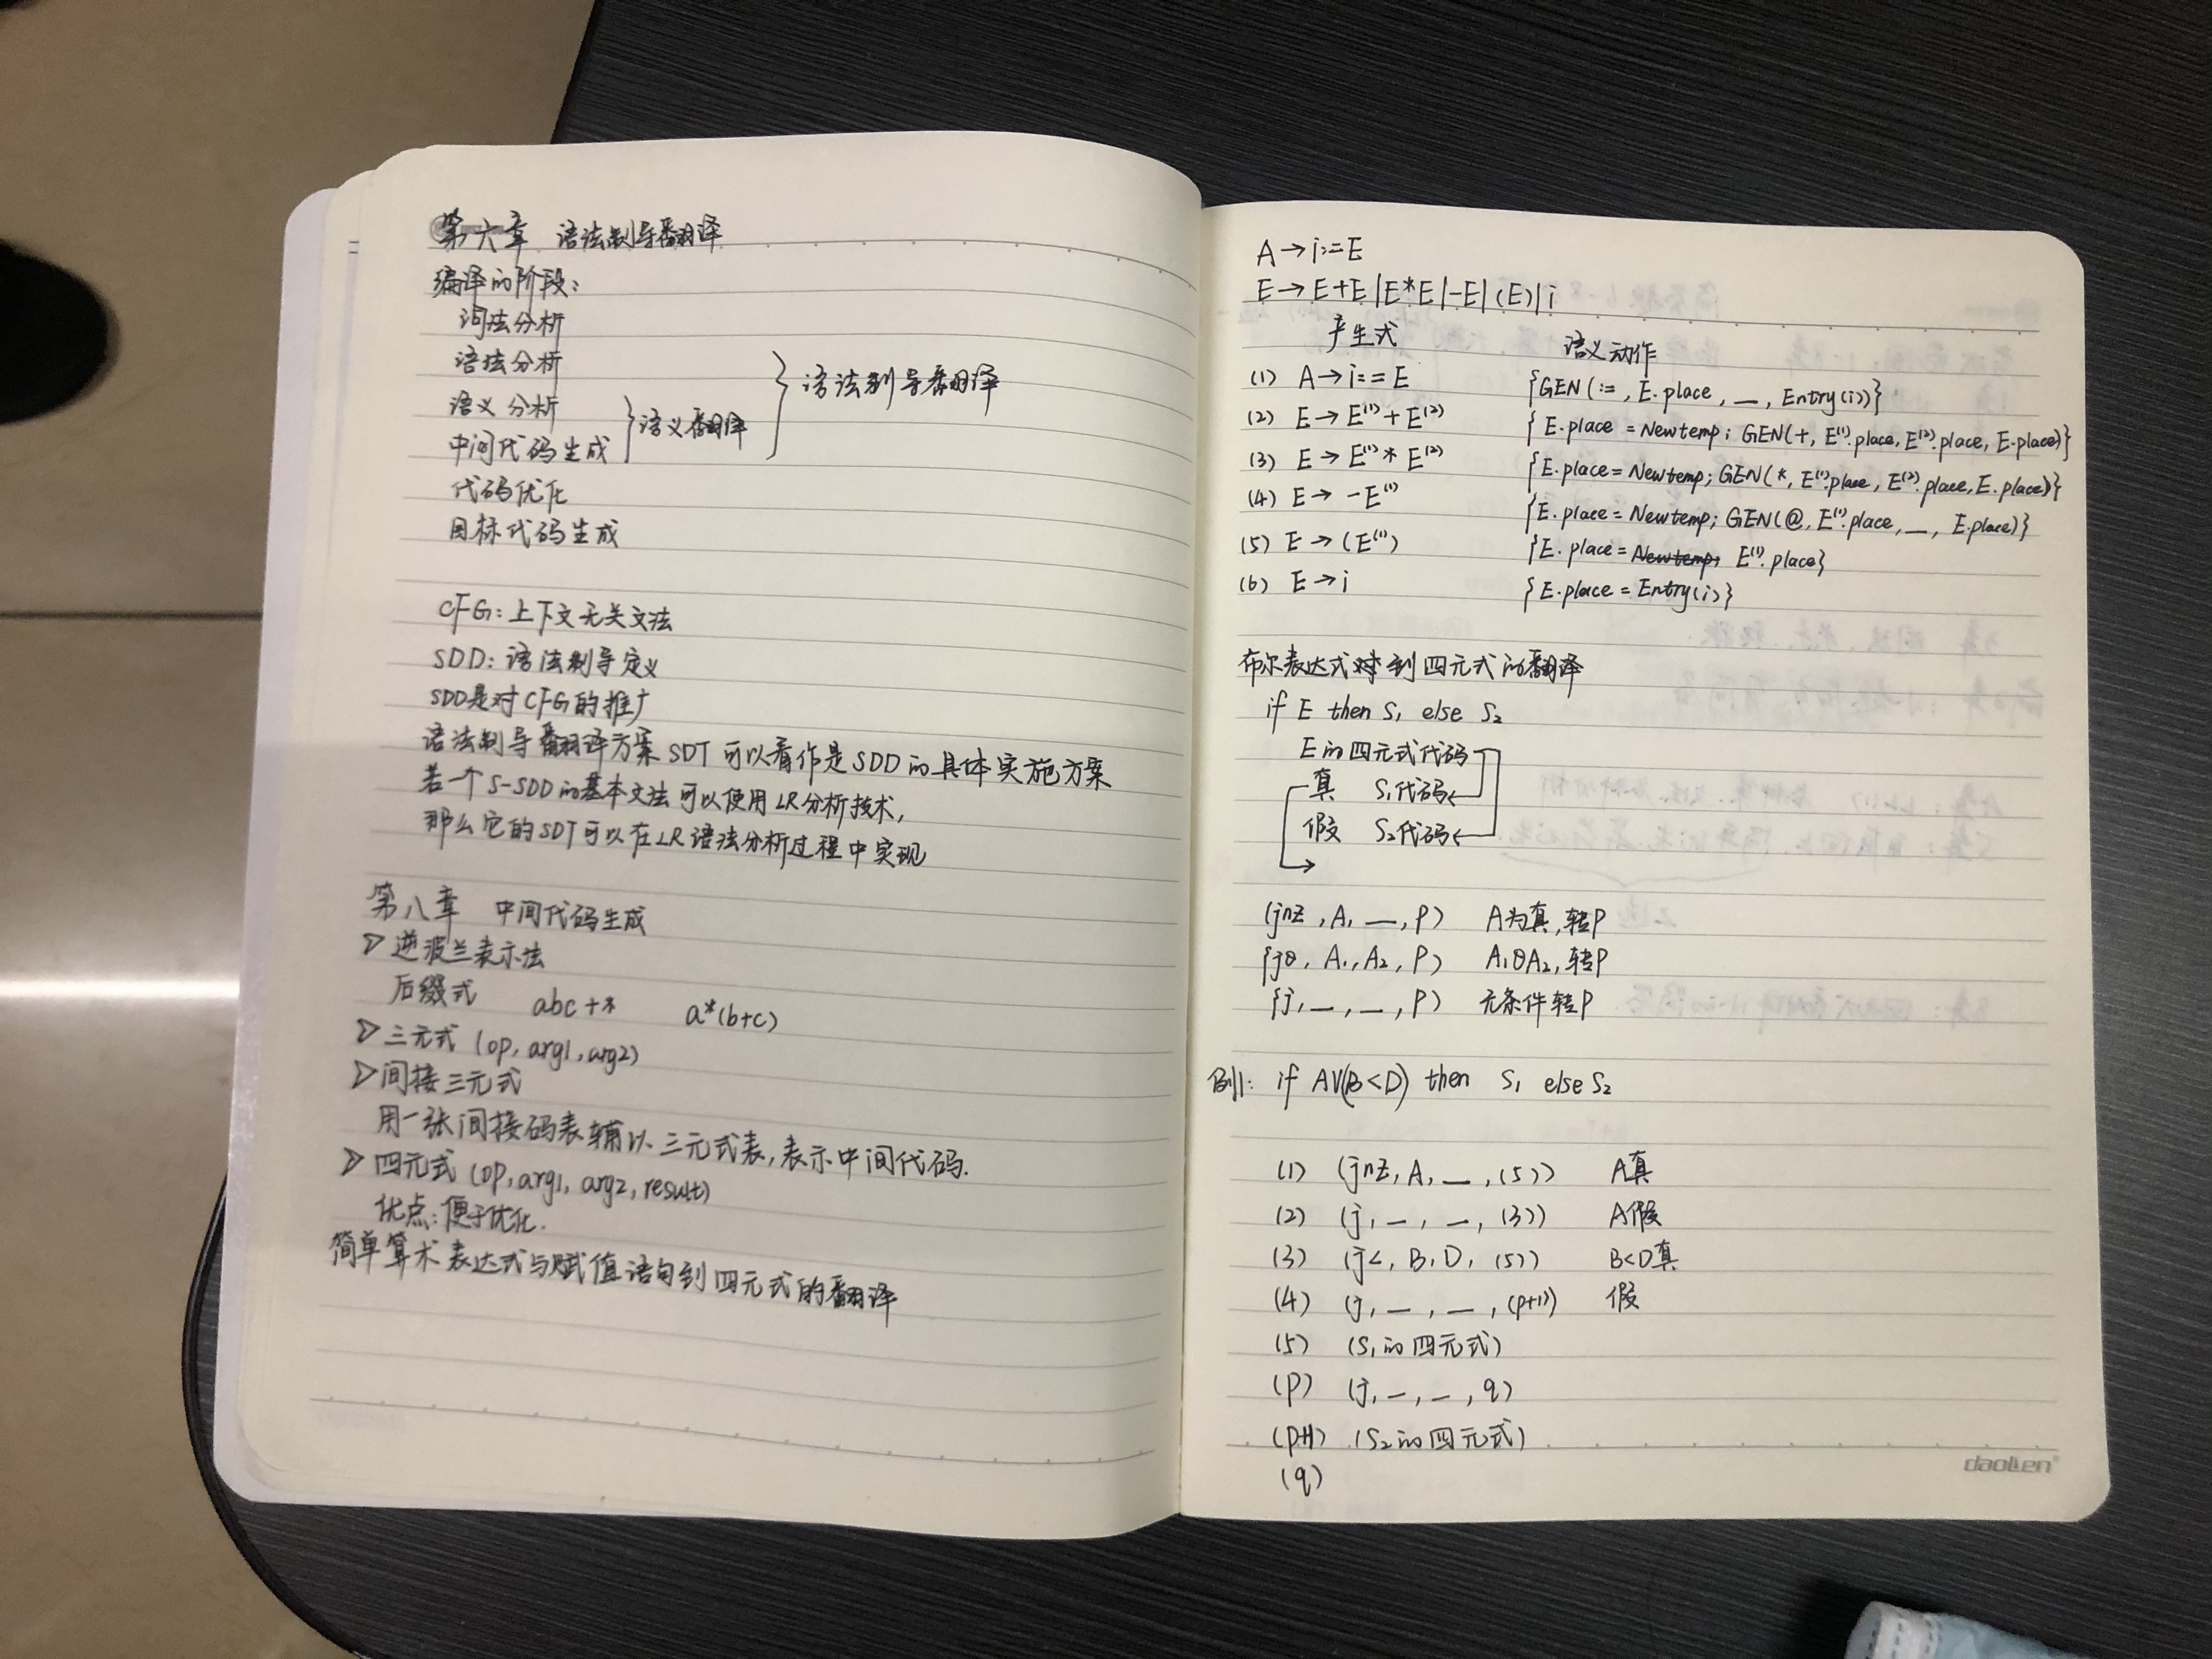 第六章 语法制导翻译
编译的阶段:
词法分析
语法分析
语义分析
中间代码生成 }语义翻译 }语法制导翻译
代码优化
目标代码生成
CFG:上下文无关文法
SDD:语法制导定义
SDD是对CFG的推广
语法制导翻译方案SDT可以看作是SDD的具体实施方案
若一个S-SDD的基本文法可以使用LR分析技术,
那么它的SDT可以在LR语法分析过程中实现
第八章 中间代码生成
▷ 逆波兰表示法
后缀式 abc+* a*(b+c)
▷ 三元式 (op, arg1, arg2)
▷ 间接三元式
用一张间接码表辅以三元式表,表示中间代码.
▷ 四元式 (op, arg1, arg2, result)
优点:便于优化.
简单算术表达式与赋值语句到四元式的翻译
A→i:=E
E→E+E|E*E|-E|(E)|i
产生式 语义动作
(1) A→i:=E {GEN(:=, E.place, —, Entry(i))}
(2) E→E⁽¹⁾+E⁽²⁾ {E.place=Newtemp; GEN(+, E⁽¹⁾.place, E⁽²⁾.place, E.place)}
(3) E→E⁽¹⁾*E⁽²⁾ {E.place=Newtemp; GEN(*, E⁽¹⁾.place, E⁽²⁾.place, E.place)}
(4) E→-E⁽¹⁾ {E.place=Newtemp; GEN(@, E⁽¹⁾.place, —, E.place)}
(5) E→(E⁽¹⁾) {E.place=Newtemp; E⁽¹⁾.place}
(6) E→i {E.place=Entry(i)}
布尔表达式到四元式的翻译
if E then S₁ else S₂
E的四元式代码
真 S₁代码
假 S₂代码
(jnz, A, —, P) A为真,转P
(jθ, A₁, A₂, P) A₁θA₂,转P
(j, —, —, P) 无条件转P
例1: if A∨(B<D) then S₁ else S₂
(1) (jnz, A, —, (5)) A真
(2) (j, —, —, (3)) A假
(3) (j<, B, D, (5)) B<D真
(4) (j, —, —, (p+1)) 假
(5) (S₁的四元式)
(p) (j, —, —, q)
(p+1) (S₂的四元式)
(q)
daolen®